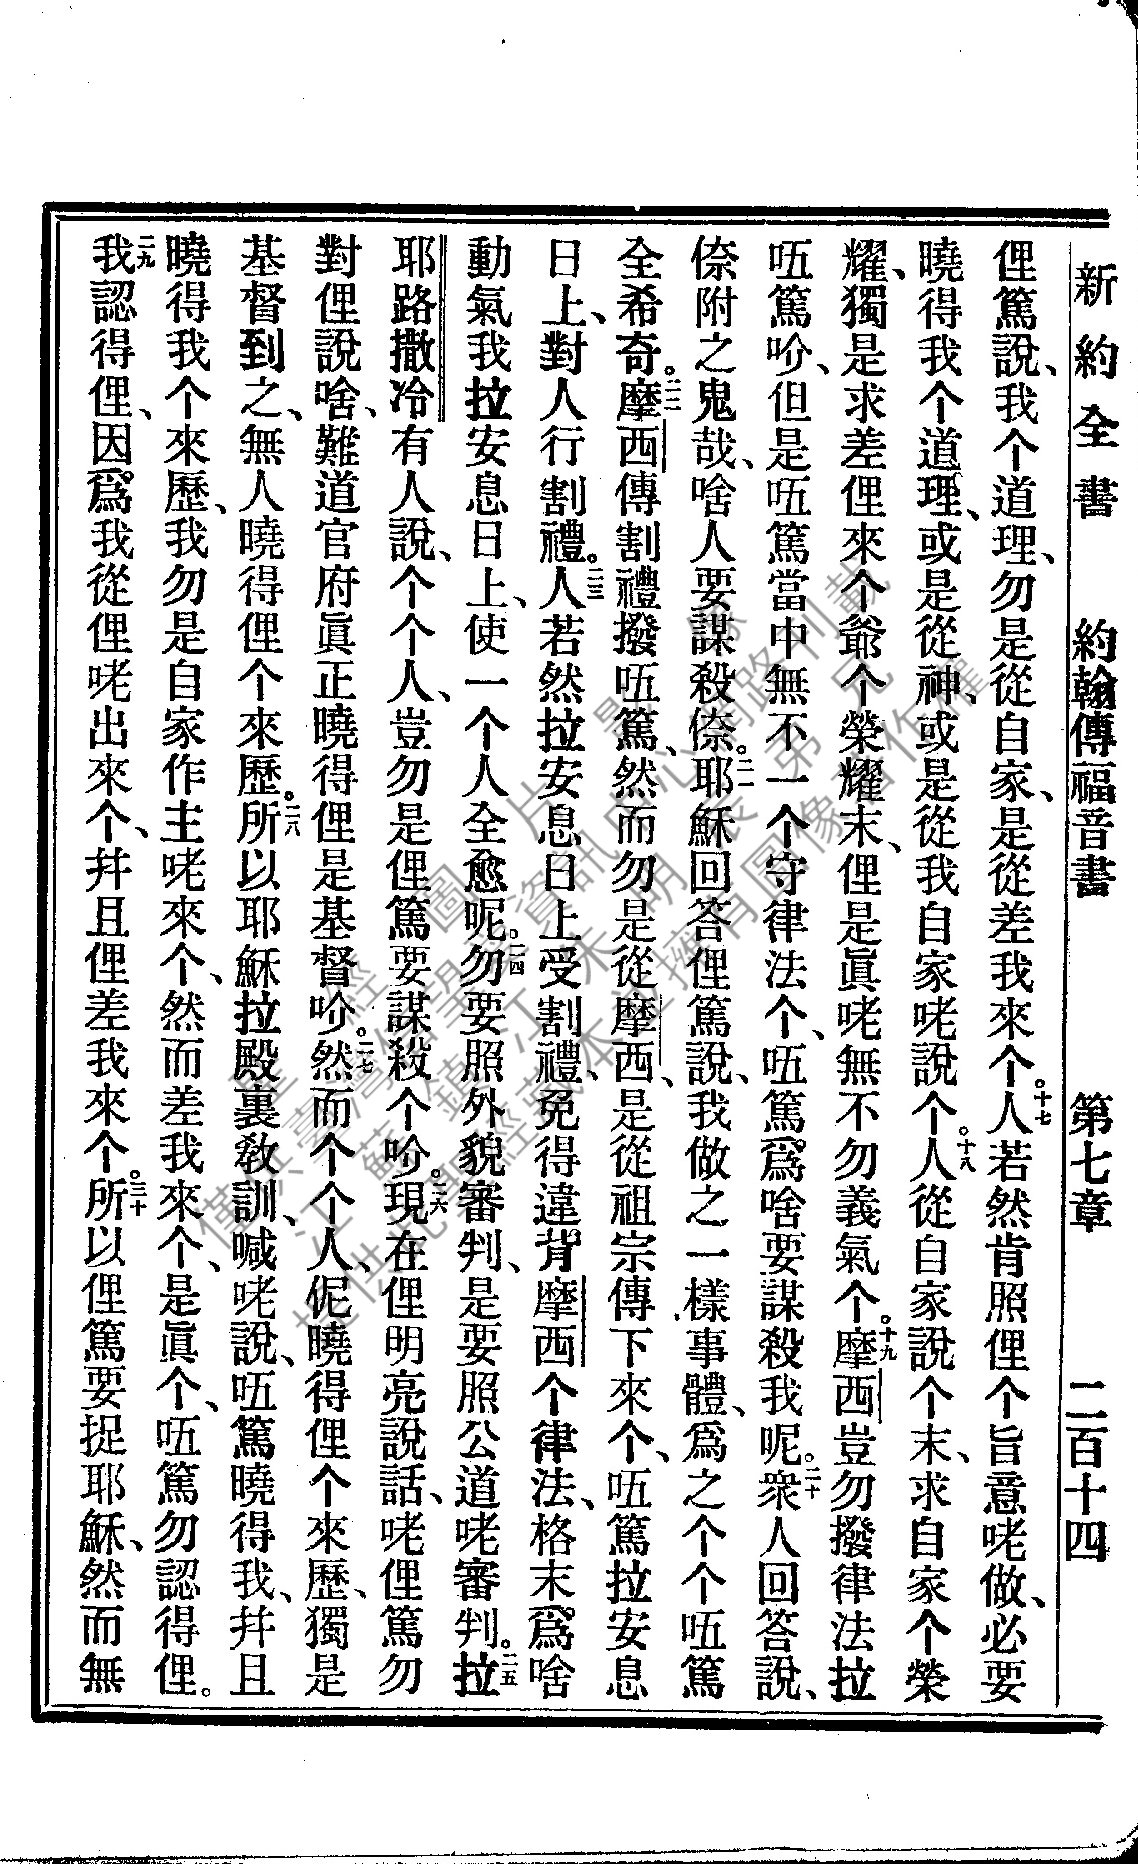 新約全書 約翰傳福音書 第七章 二百十四
俚篤說、我个道理、勿是從自家、是從差我來个。十七人若然肯照俚个旨意咾做、必要
曉得我个道理、或是從神、或是從我自家咾說个。十八人從自家說个末、求自家个榮
耀、獨是求差俚來个爺个榮耀末、俚是眞咾無不勿義氣个。十九摩西豈勿撥律法拉
㑚篤吤、但是㑚篤當中無不一个守律法个、㑚篤爲啥要謀殺我呢。二十衆人回答說、
倷附之鬼哉、啥人要謀殺倷。二一耶穌回答俚篤說、我做之一樣事體、爲之个个㑚篤
全希奇。二二摩西傳割禮撥㑚篤、然而勿是從摩西、是從祖宗傳下來个、㑚篤拉安息
日上、對人行割禮。二三人若然拉安息日上受割禮、免得違背摩西个律法、格末爲啥
動氣我拉安息日上、使一个人全愈呢。二四勿要照外貌審判、是要照公道咾審判。二五拉
耶路撒冷有人說、个个人、豈勿是俚篤要謀殺个吤。二六現在俚明亮說話、咾俚篤勿
對俚說啥、難道官府眞正曉得俚是基督吤。二七然而个个人、伲曉得俚个來歷、獨是
基督到之、無人曉得俚个來歷。二八所以耶穌拉殿裏敎訓、喊咾說、㑚篤曉得我、幷且
曉得我个來歷、我勿是自家作主咾來个、然而差我來个、是眞个、㑚篤勿認得俚。
二九我認得俚、因爲我從俚咾出來个、幷且俚差我來个。三十所以俚篤要捉耶穌、然而無